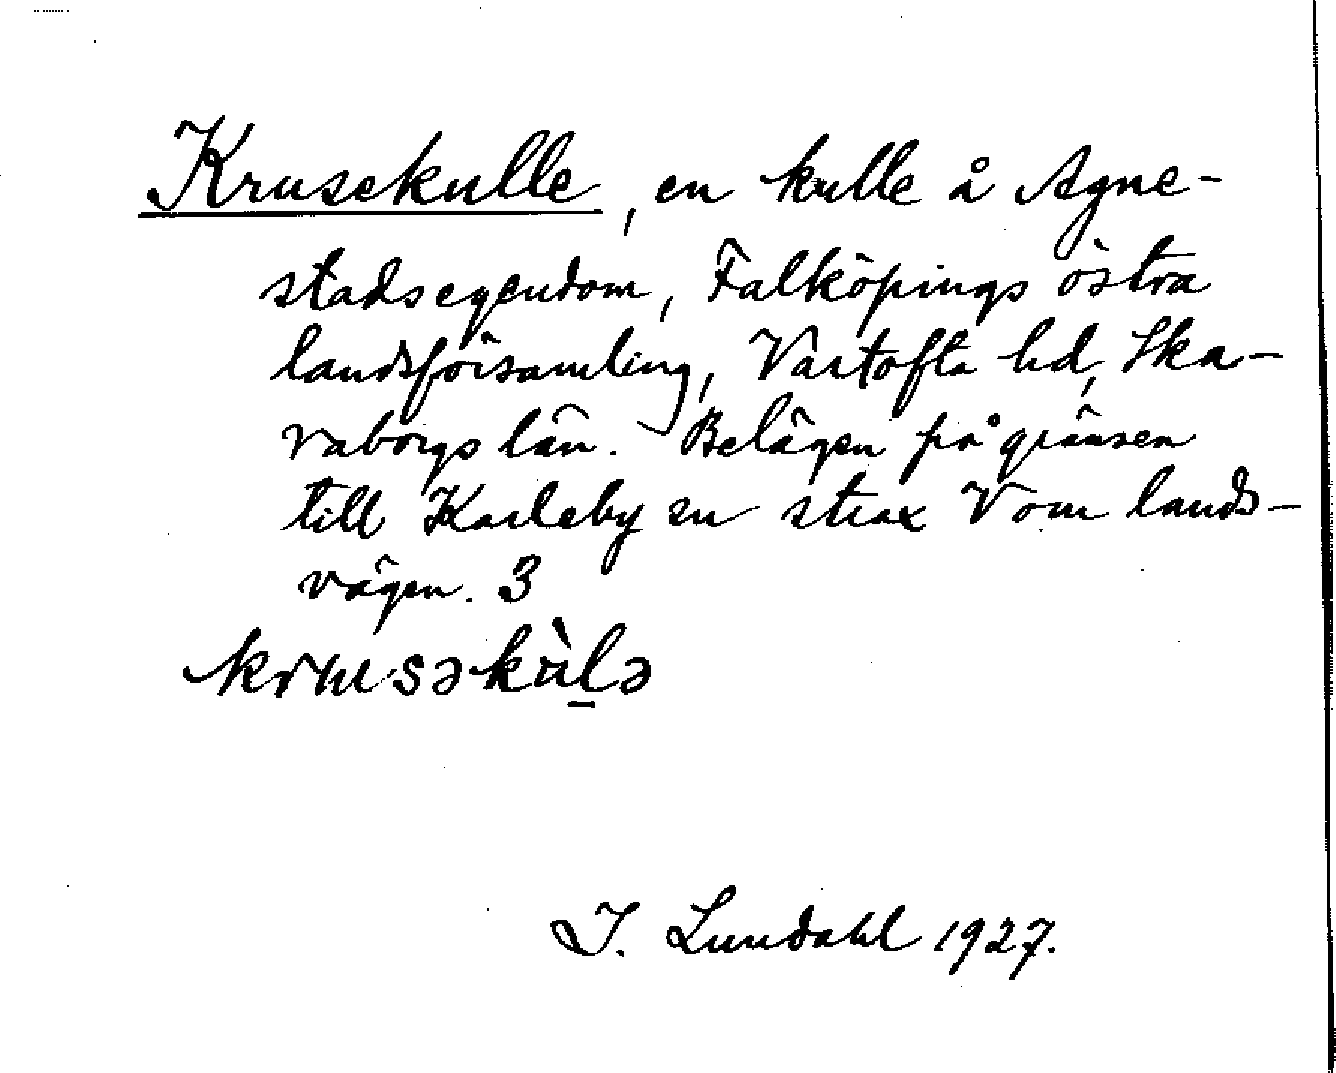 Krusekulle, en kulle å Agne-
stadsegendom, Falköpings östra
landsförsamling, Vartofta hd, Ska-
raborgs län. Belägen på gränsen
till Karleby sn strax V om lands-
vägen. 3
krɯsəkùlə
I. Lundahl 1927.